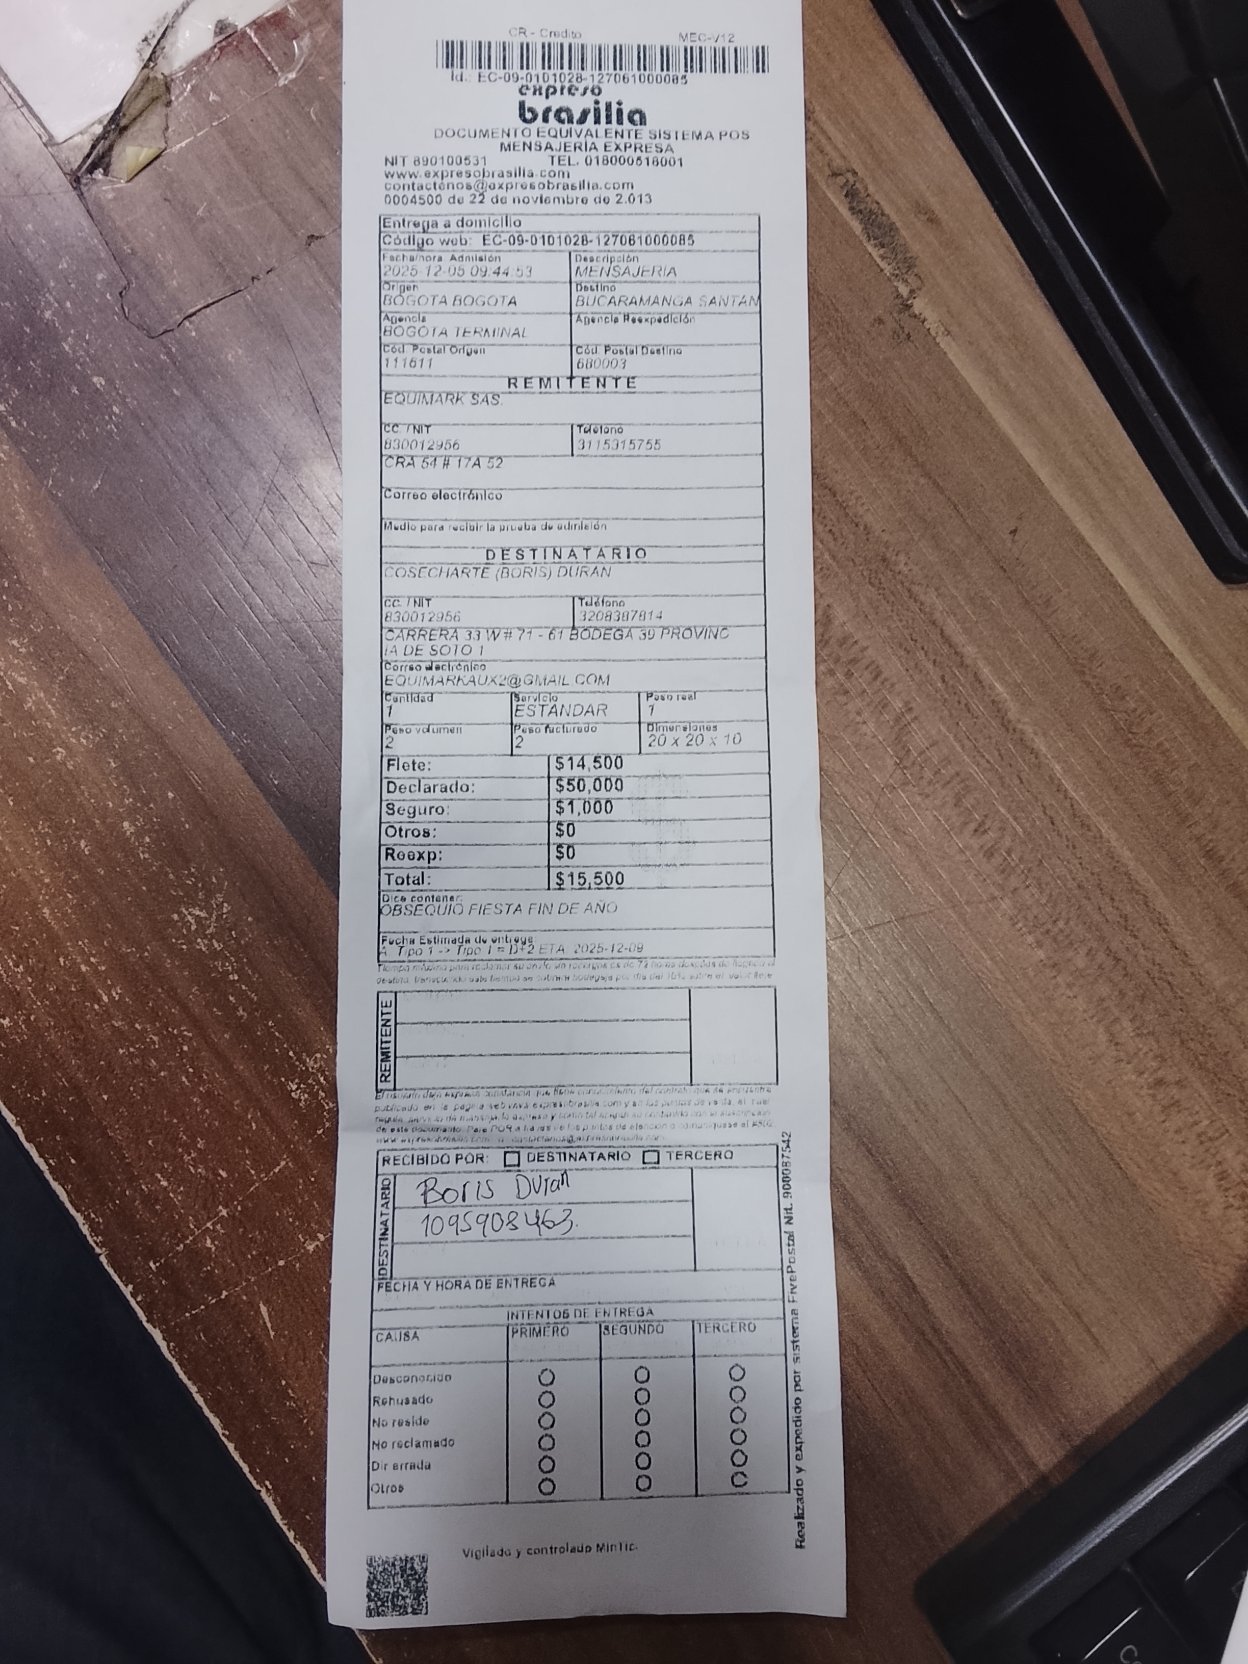 CR - Credito MEC-V12
Id.: EC-09-0101028-127061000085
expreso
brasilia
DOCUMENTO EQUIVALENTE SISTEMA POS
MENSAJERÍA EXPRESA
NIT 890100531 TEL. 018000518001
www.expresobrasilia.com
contactenos@expresobrasilia.com
0004500 de 22 de noviembre de 2.013
Entrega a domicilio
Código web: EC-09-0101028-127061000085
Fecha/hora Admisión Descripción
2025-12-05 09:44:53 MENSAJERIA
Origen Destino
BOGOTA BOGOTA BUCARAMANGA SANTAN
Agencia Agencia Reexpedición
BOGOTA TERMINAL
Cód. Postal Origen Cód. Postal Destino
111611 680003
REMITENTE
EQUIMARK SAS.
CC. / NIT Teléfono
830012956 3115315755
CRA 54 # 17A 52
Correo electrónico
Medio para recibir la prueba de admisión
DESTINATARIO
COSECHARTE (BORIS) DURAN
CC. / NIT Teléfono
830012956 3208387814
CARRERA 33 W # 71 - 61 BODEGA 39 PROVINC
IA DE SOTO 1
Correo electrónico
EQUIMARKAUX2@GMAIL.COM
Cantidad Servicio Peso real
1 ESTANDAR 1
Peso volumen Peso facturado Dimensiones
2 2 20 x 20 x 10
Flete: $14,500
Declarado: $50,000
Seguro: $1,000
Otros: $0
Reexp: $0
Total: $15,500
Dice contener:
OBSEQUIO FIESTA FIN DE AÑO
Fecha Estimada de entrega
A. Tipo 1 -> Tipo 1 = D+2 ETA: 2025-12-09
REMITENTE
RECIBIDO POR: DESTINATARIO TERCERO
DESTINATARIO
Boris Duran
1095908463.
FECHA Y HORA DE ENTREGA
INTENTOS DE ENTREGA
CAUSA PRIMERO SEGUNDO TERCERO
Desconocido
Rehusado
No reside
No reclamado
Dir errada
Otros
Vigilado y controlado MinTic.
Realizado y expedido por sistema FivePostal Nit. 900087542